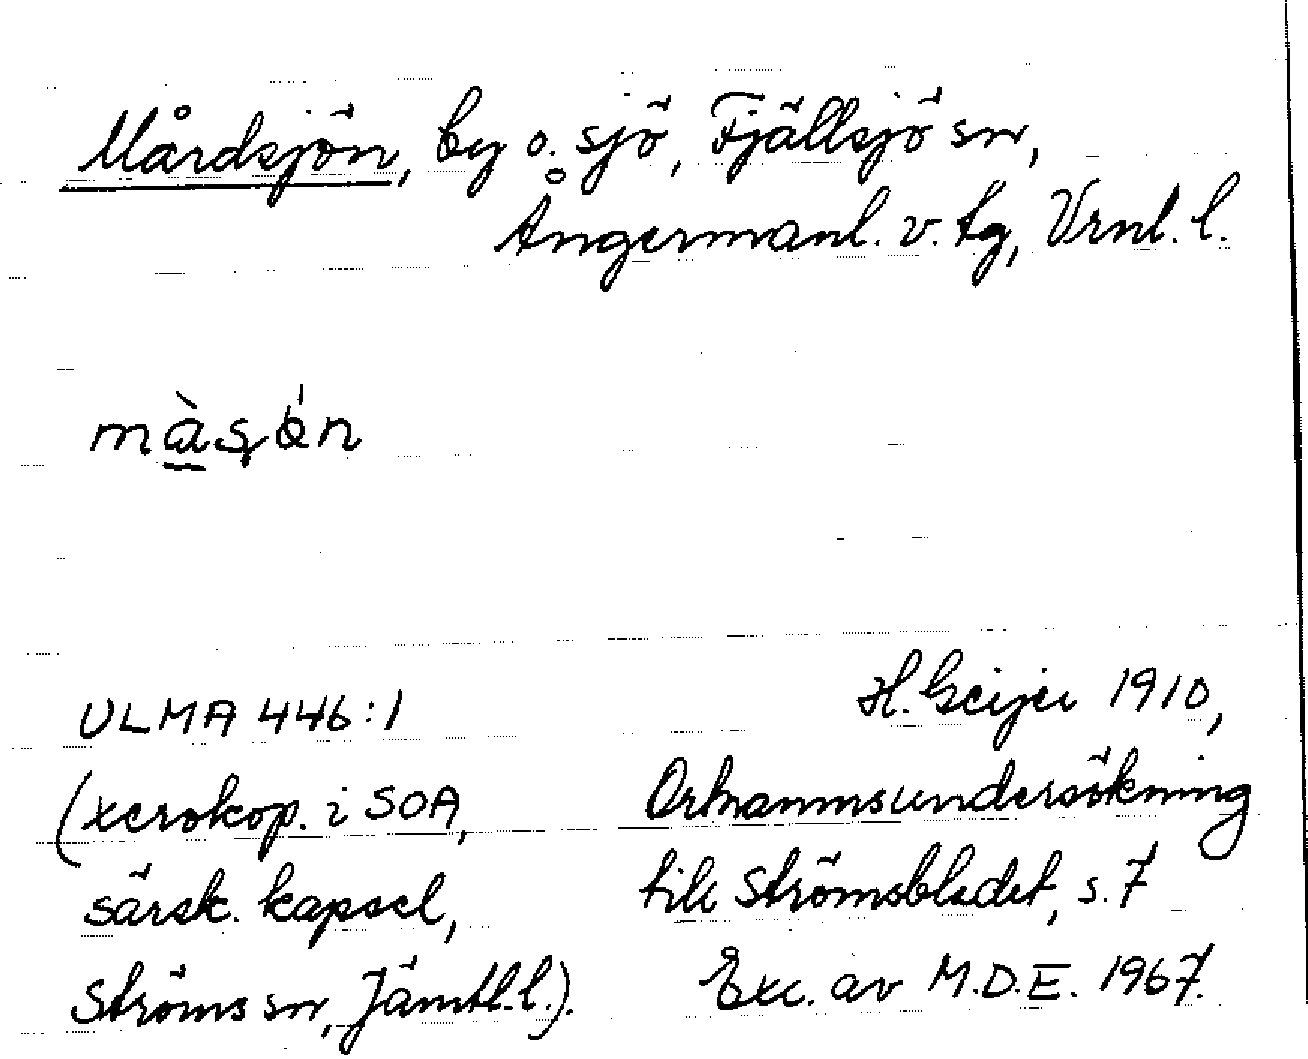 Mårdsjön, by o. sjö, Fjällsjö sn,
Ångermanl. v. tg, Vrnl. l.
H. Geijer 1910,
ULMA 446:1
Ortnamnsundersökning
(xerokop. i SOA,
till Strömsbladet, s. 7
särsk. kapsel,
Exc. av M.D.E. 1967.
Ströms sn, Jämtl. l.).